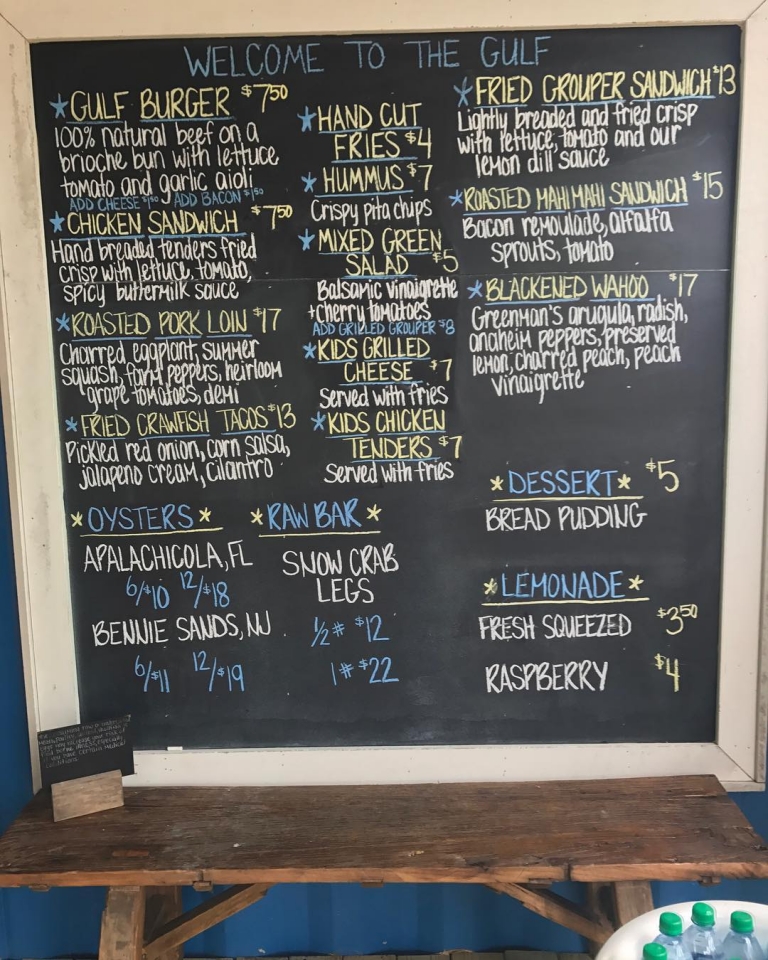 WELCOME TO THE GULF
GULF BURGER $7.50
100% natural beef on a
brioche bun with lettuce
tomato and garlic aioli
ADD CHEESE $1.50 / ADD BACON $1.50
CHICKEN SANDWICH $7.50
Hand breaded tenders fried
crisp with lettuce, tomato,
spicy buttermilk sauce
ROASTED PORK LOIN $17
Charred eggplant, summer
squash, farm peppers, heirloom
grape tomatoes, demi
FRIED CRAWFISH TACOS $13
Pickled red onion, corn salsa,
jalapeno cream, cilantro
HAND CUT
FRIES $4
HUMMUS $7
Crispy pita chips
MIXED GREEN
SALAD $5
Balsamic vinaigrette
+ cherry tomatoes
ADD GRILLED GROUPER $8
KIDS GRILLED
CHEESE $7
Served with fries
KIDS CHICKEN
TENDERS $7
Served with fries
FRIED GROUPER SANDWICH $13
Lightly breaded and fried crisp
with lettuce, tomato and our
lemon dill sauce
ROASTED MAHI MAHI SANDWICH $15
Bacon remoulade, alfalfa
sprouts, tomato
BLACKENED WAHOO $17
Greenman's arugula, radish,
anaheim peppers, preserved
lemon, charred peach, peach
vinaigrette
OYSTERS
APALACHICOLA, FL
6/$10 12/$18
BENNIE SANDS, NJ
6/$11 12/$19
RAW BAR
SNOW CRAB
LEGS
1/2# $12
1# $22
DESSERT $5
BREAD PUDDING
LEMONADE
FRESH SQUEEZED $3.50
RASPBERRY $4